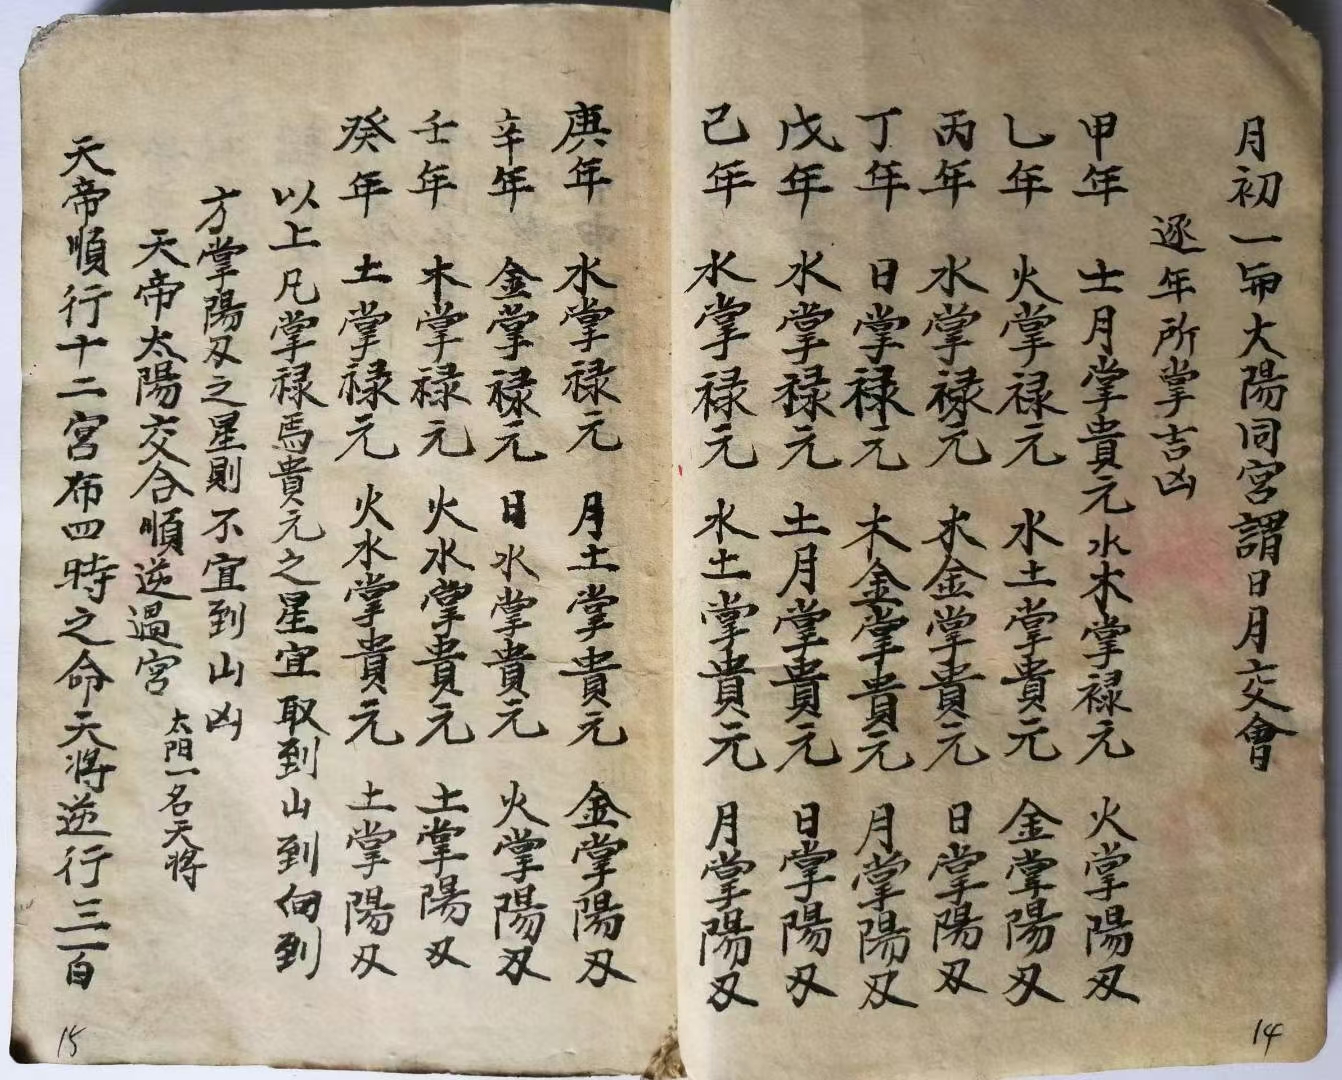 月初一與太陽同宮謂日月交會
逐年所掌吉凶
甲年 土月掌貴元 水木掌祿元 火掌陽刃
乙年 火掌祿元 水土掌貴元 金掌陽刃
丙年 水掌祿元 水金掌貴元 日掌陽刃
丁年 日掌祿元 木金掌貴元 月掌陽刃
戊年 水掌祿元 土月掌貴元 日掌陽刃
己年 水掌祿元 水土掌貴元 月掌陽刃
14
庚年 水掌祿元 月土掌貴元 金掌陽刃
辛年 金掌祿元 日水掌貴元 火掌陽刃
壬年 木掌祿元 火水掌貴元 土掌陽刃
癸年 土掌祿元 火水掌貴元 土掌陽刃
以上凡掌祿馬貴元之星宜取到山到向到
方掌陽刃之星則不宜到山凶
天帝太陽交合順逆過宮 太阳一名天将
天帝順行十二宮布四時之命天将逆行三百
15